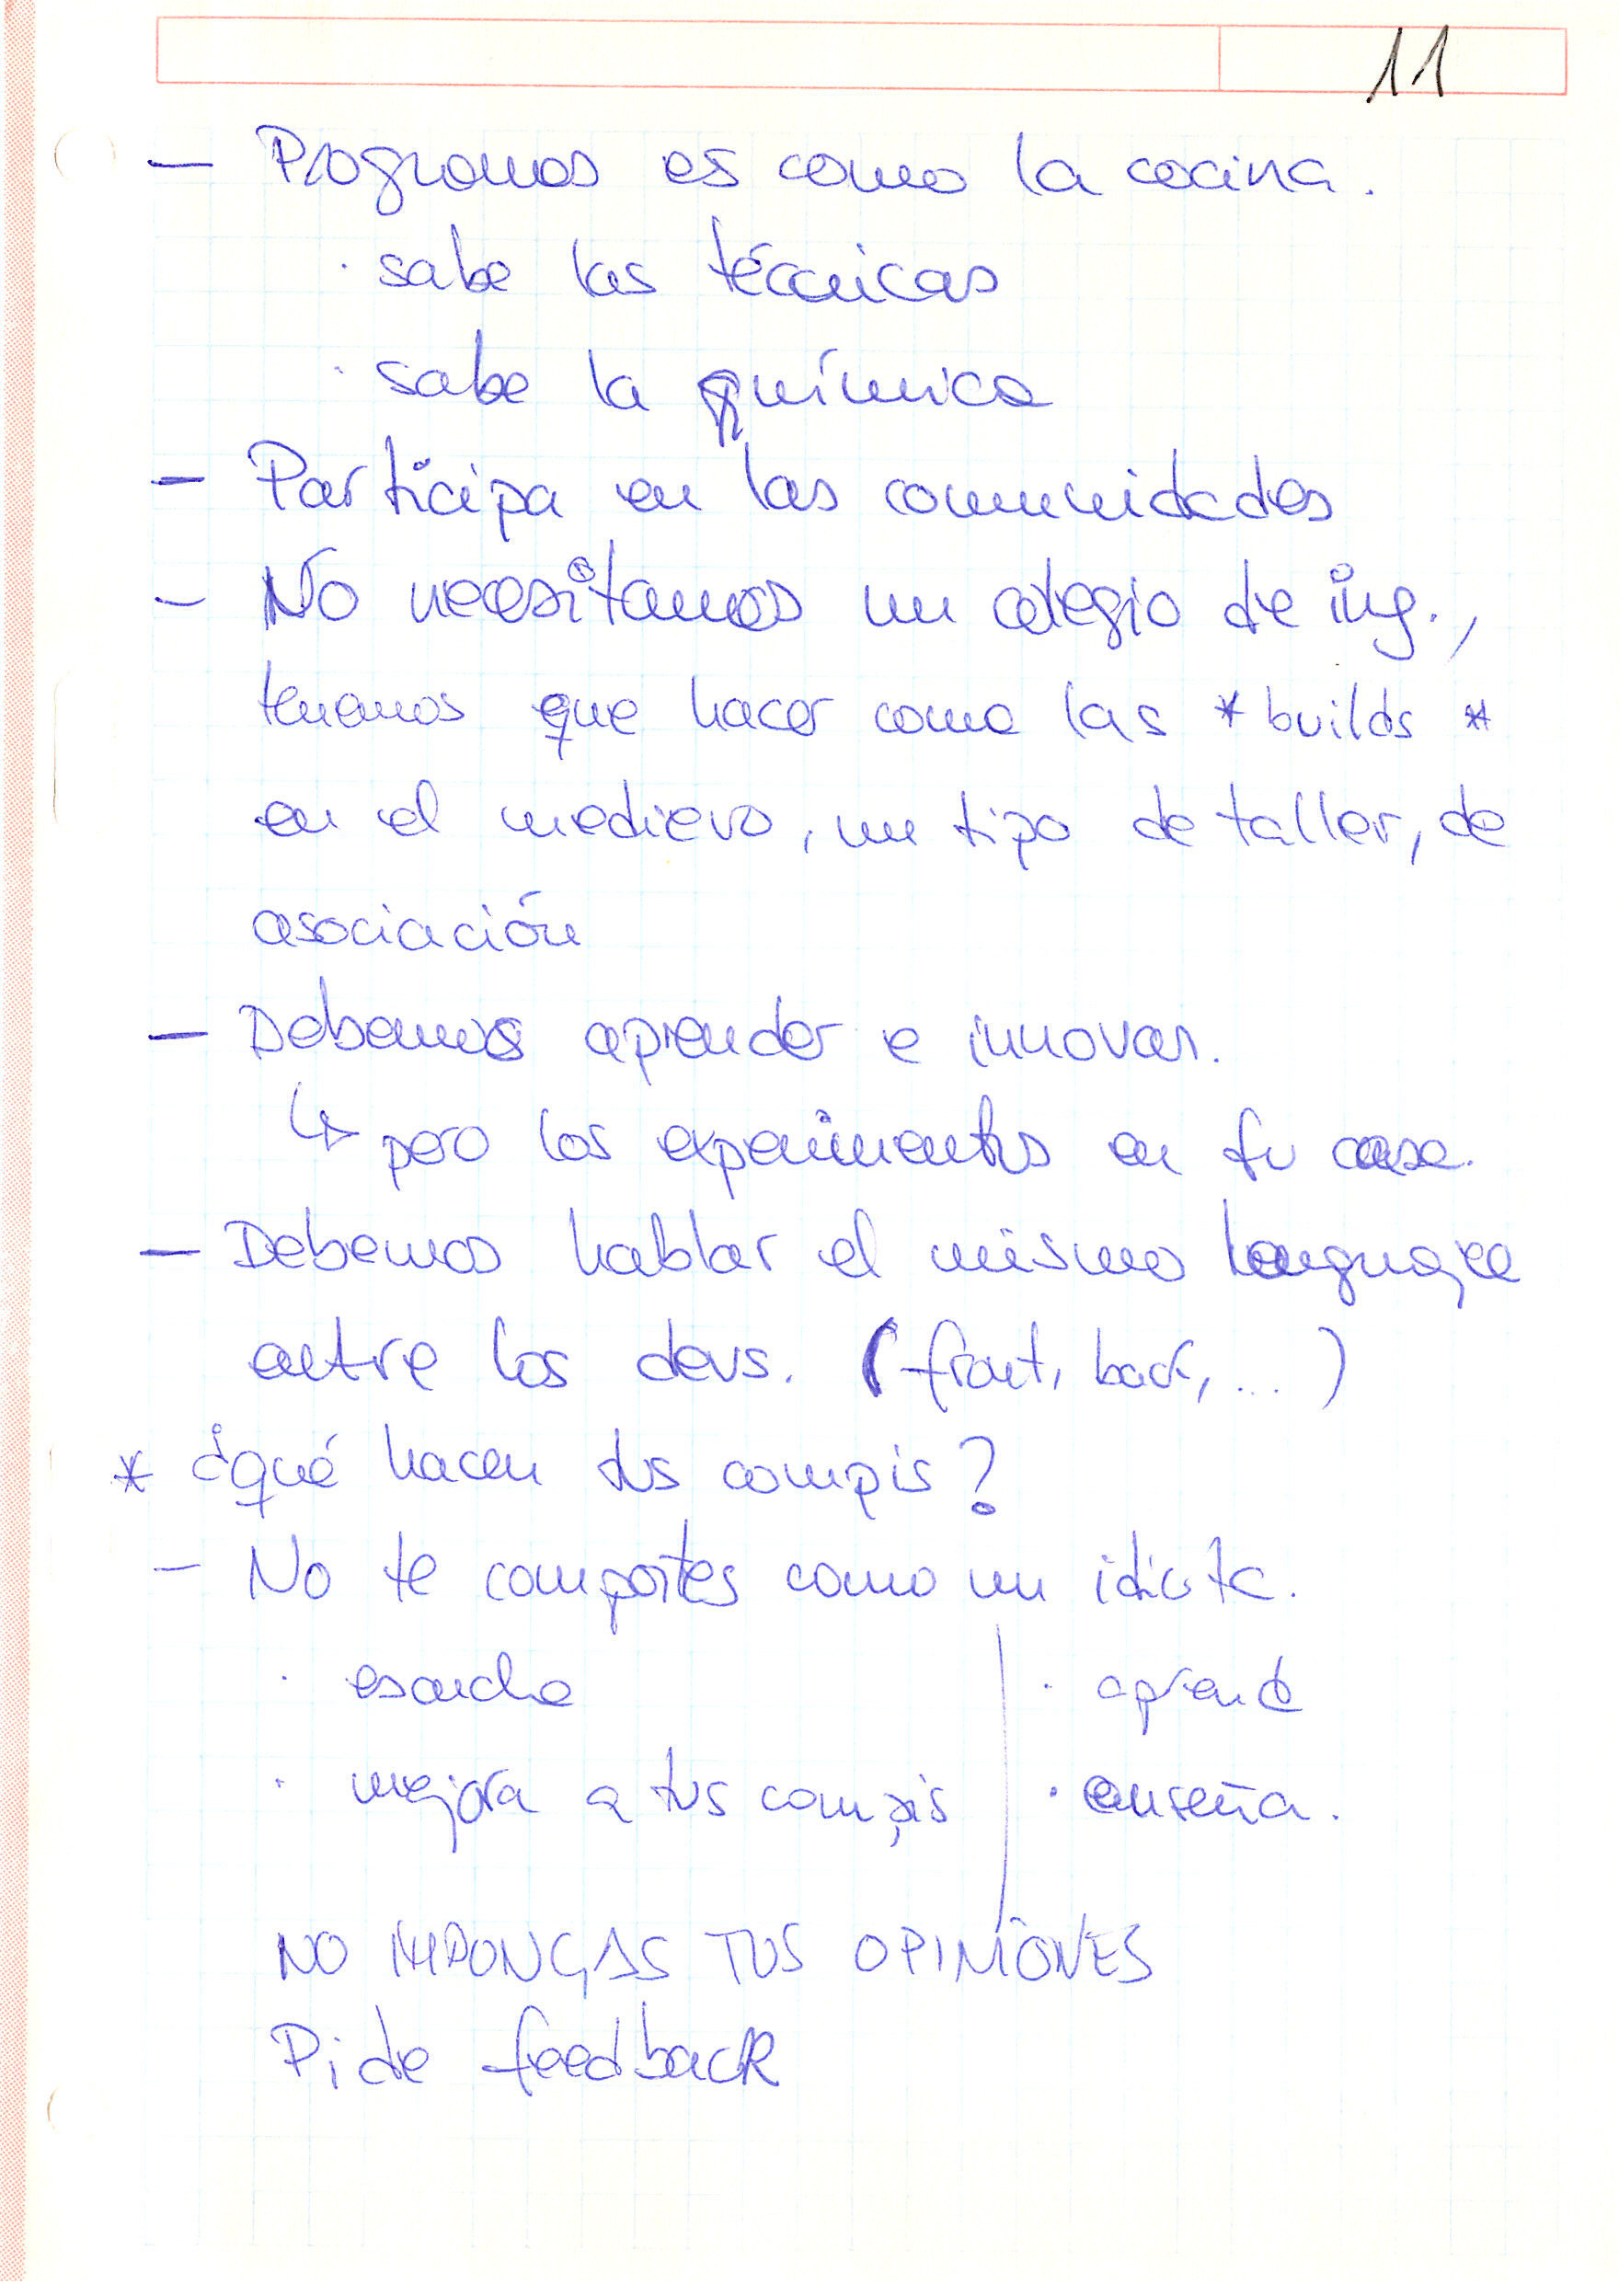 11
- Programas es como la cocina.
· sabe las técnicas
· sabe la química
- Participa en las comunidades
- No necesitamos un colegio de ing.,
tenemos que hacer como las * builds *
en el medievo, un tipo de taller, de
asociación
- Debemos aprender e innovar.
↳ pero los experimentos en tu casa.
- Debemos hablar el mismo lenguaje
entre los devs. (front, back, ... )
* ¿qué hacen tus compis?
- No te comportes como un idiota.
· escucha · aprende
· mejora a tus compis · enseña.
NO IMPONGAS TUS OPINIONES
Pide feedback